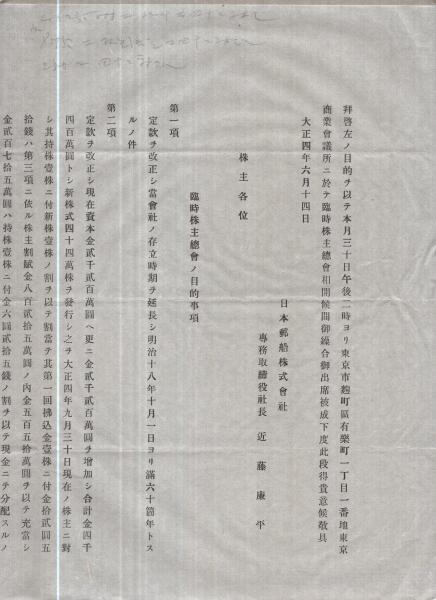 拜啓左ノ目的ヲ以テ本月三十日午後二時ヨリ東京市麹町區有樂町一丁目一番地東京
商業會議所ニ於テ臨時株主總會相開候間御繰合御出席被成下度此段得貴意候敬具
大正四年六月十四日
日本郵船株式會社
專務取締役社長 近藤廉平
株主各位
臨時株主總會ノ目的事項
第一項
定款ヲ改正シ當會社ノ存立時期ヲ延長シ明治十八年十月一日ヨリ滿六十箇年トス
ルノ件
第二項
定款ヲ改正シ現在資本金貳千貳百萬圓ヘ更ニ金貳千貳百萬圓ヲ增加シ合計金四千
四百萬圓トシ新株式四十四萬株ヲ發行シ之ヲ大正四年九月三十日現在ノ株主ニ對
シ其持株壹株ニ付新株壹株ノ割ヲ以テ割當テ其第一回拂込金壹株ニ付金拾貳圓五
拾錢ハ第三項ニ依ル株主割賦金八百貳拾五萬圓ノ內金五百五拾萬圓ヲ以テ充當シ
金貳百七拾五萬圓ハ持株壹株ニ付金六圓貳拾五錢ノ割ヲ以テ現金ニテ分配スルノ